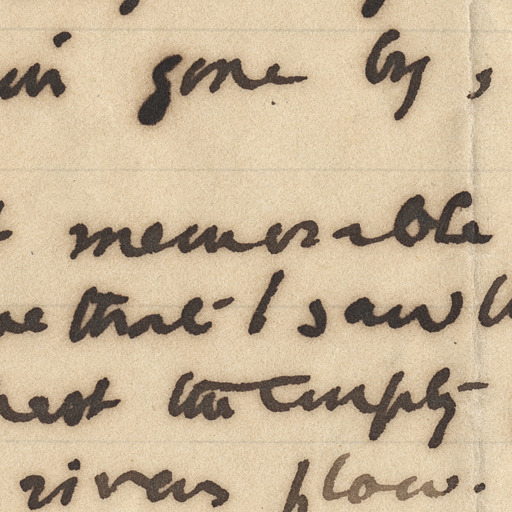 gone by,
memorable
that I saw
the empty
rivers flow.